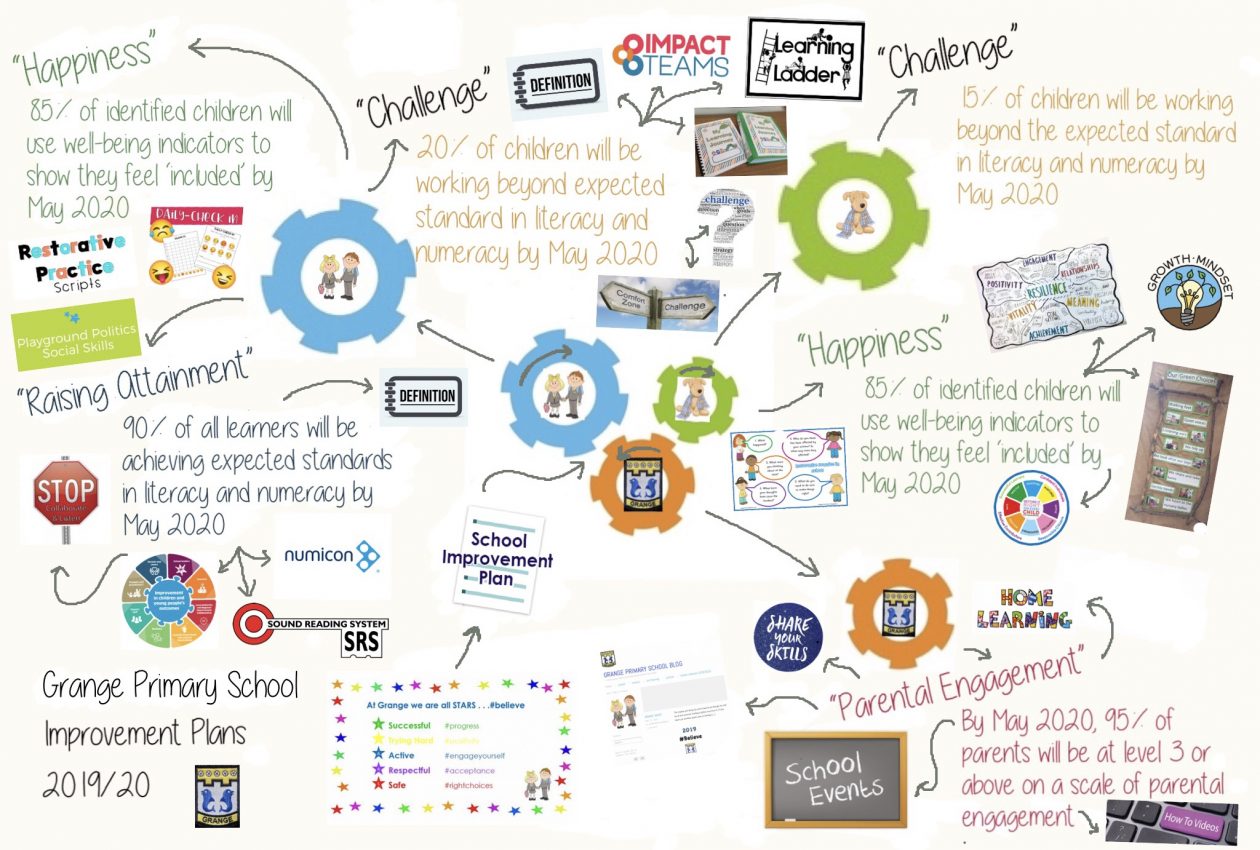 "Happiness"
85% of identified children will
use well-being indicators to
show they feel 'included' by
May 2020
Restorative
Practice
Scripts
DAILY-CHECK IN
Playground Politics
Social Skills
"Challenge"
DEFINITION
IMPACT
TEAMS
Learning
Ladder
20% of children will be
working beyond expected
standard in literacy and
numeracy by May 2020
My
Learning
Journey
challenge
question
strategy
Comfort
Zone
Challenge
"Challenge"
15% of children will be working
beyond the expected standard
in literacy and numeracy by
May 2020
ENGAGEMENT
POSITIVITY
RELATIONSHIPS
RESILIENCE
VITALITY
MEANING
ACHIEVEMENT
GROWTH·MINDSET
"Happiness"
85% of identified children will
use well-being indicators to
show they feel 'included' by
May 2020
Our Green Choices
CHILD
"Raising Attainment"
DEFINITION
90% of all learners will be
achieving expected standards
in literacy and numeracy by
May 2020
STOP
Collaborate
& Listen
numicon
Improvement
in children and
young people's
outcomes
SOUND READING SYSTEM
SRS
School
Improvement
Plan
GRANGE
Grange Primary School
Improvement Plans
2019/20
GRANGE
At Grange we are all STARS . . .#believe
Successful #progress
Trying Hard #positivity
Active #engageyourself
Respectful #acceptance
Safe #rightchoices
GRANGE PRIMARY SCHOOL BLOG
2019
#Believe
SHARE
YOUR
SKILLS
GRANGE
HOME
LEARNING
"Parental Engagement"
By May 2020, 95% of
parents will be at level 3 or
above on a scale of parental
engagement
School
Events
How To Videos